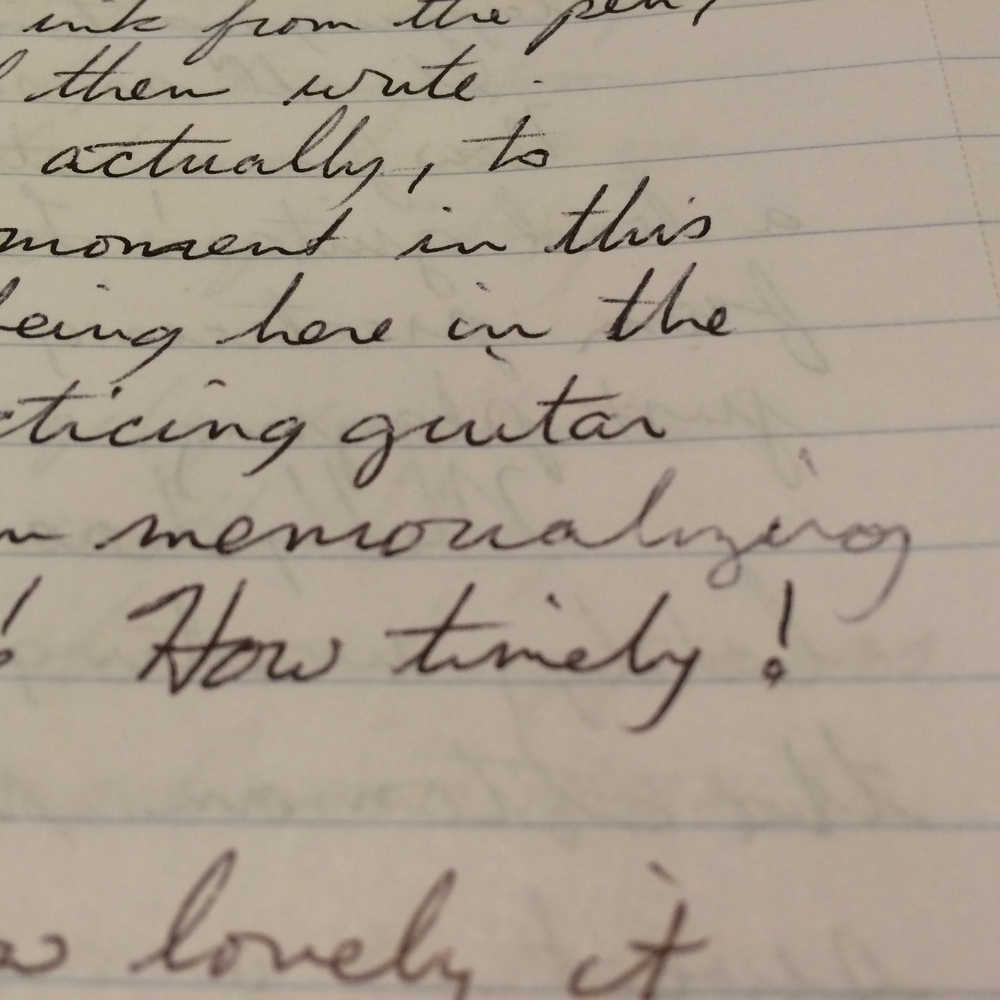 ink from the pen,
then write.
actually, to
moment in this
being here in the
cticing guitar
memorializing
! How timely!
lovely it